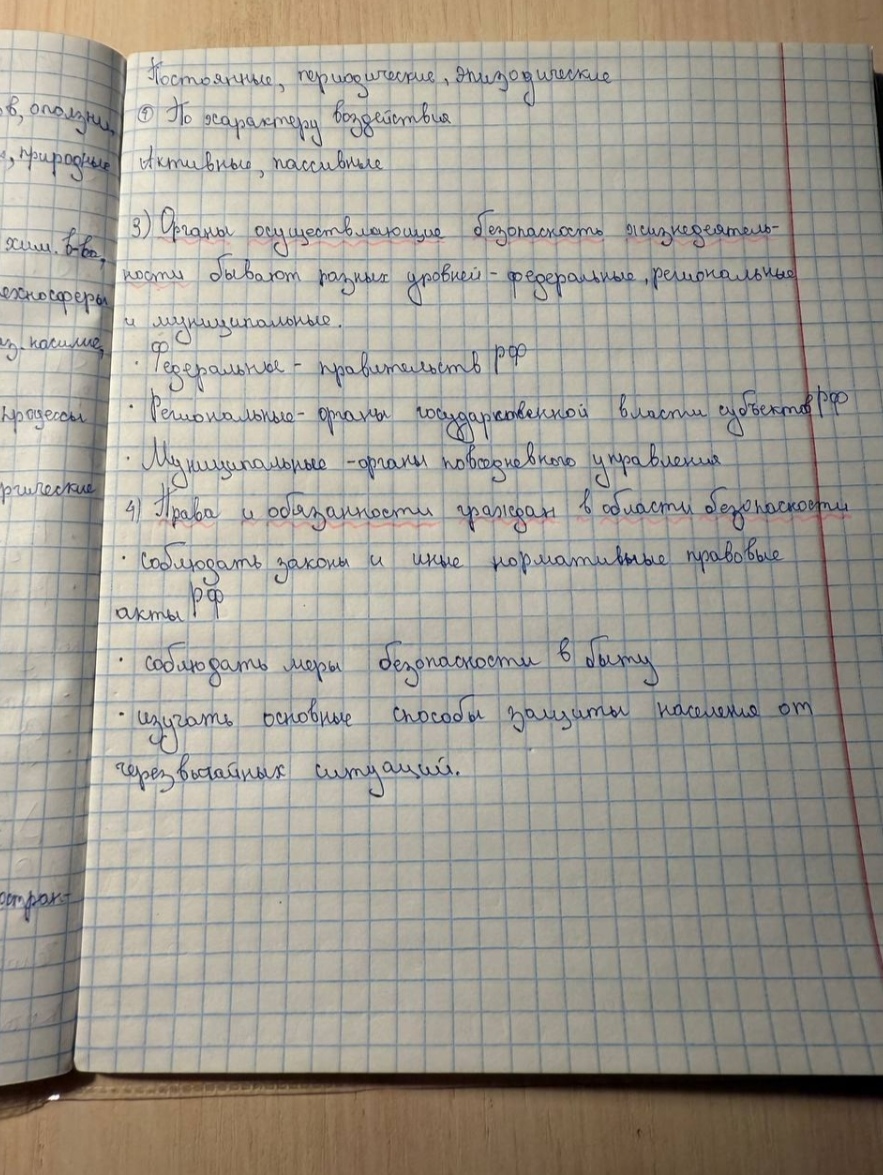 Постоянные, периодические, эпизодические
⑨ По характеру воздействия
Активные, пассивные
3) Органы осуществляющие безопасность жизнедеятель-
ности бывают разных уровней - федеральные, региональные
и муниципальные.
· Федеральные - правительств РФ
· Региональные - органы государственной власти субъектов РФ
· Муниципальные - органы повседневного управления
4) Права и обязанности граждан в области безопасности
· соблюдать законы и иные нормативные правовые
акты РФ
· соблюдать меры безопасности в быту
· изучать основные способы защиты населения от
черезвычайных ситуаций.
в, оползни,
, природные
хим. в-во,
ехносферы
из. насилие,
процессы
ргические